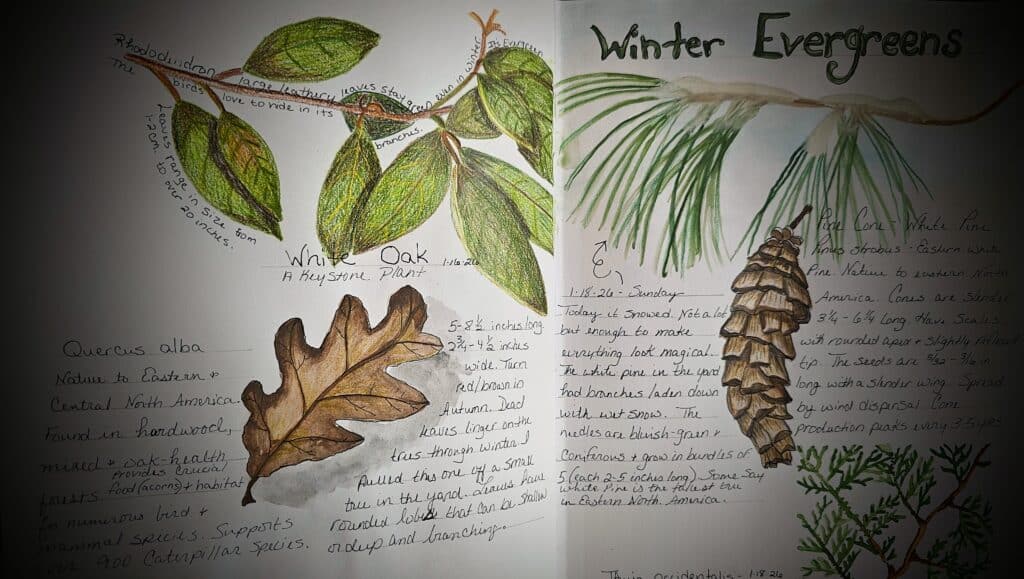 Rhododendron large leathery leaves stay green even in winter. It's Evergreen
The birds love to hide in its branches.
Leaves range in size from
1-2cm to over 20 inches.
White Oak 1-16-26
A Keystone Plant
Quercus alba
Native to Eastern +
Central North America.
Found in hardwood,
mixed + oak-health
forests provides crucial
food (acorns) + habitat
for numerous bird +
mammal species. Supports
over 900 Caterpillar Species.
5-8 1/2 inches long
2 3/4-4 1/2 inches
wide. Turn
red/brown in
Autumn. Dead
leaves linger on the
tree through winter. I
Pulled this one off a small
tree in the yard. Leaves have
rounded lobes that can be shallow
or deep and branching.
Winter Evergreens
1-18-26 - Sunday
Today it snowed. Not a lot
but enough to make
everything look magical.
The white pine in the yard
had branches laden down
with wet snow. The
needles are bluish-green +
coniferous + grow in bundles of
5 (each 2-5 inches long) Some say
White Pine is the tallest tree
in Eastern North America.
Pine Cone - White Pine
Pinus strobus - Eastern White
Pine. Native to eastern North
America. Cones are slender
3 1/4 - 6 1/4 long. Have Scales
with rounded apex + slightly
tip. The seeds are 5/32 - 3/16 in
long with a slender wing. Spread
by wind dispersal. Cone
production peaks every 3-5 yrs
Thuja occidentalis - 1-18-26